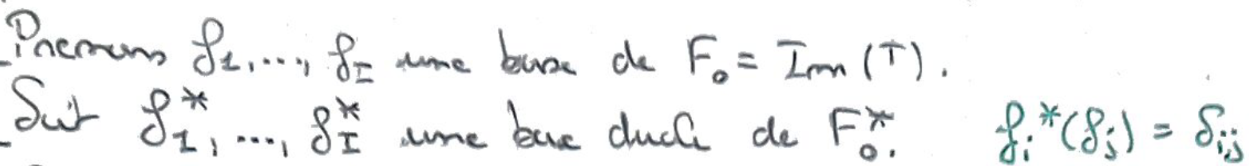 Prenons f₁, ..., f_I une base de F₀ = Im(T).
Soit f₁*, ..., f_I* une base duale de F₀*. f_i*(f_j) = δ_ij